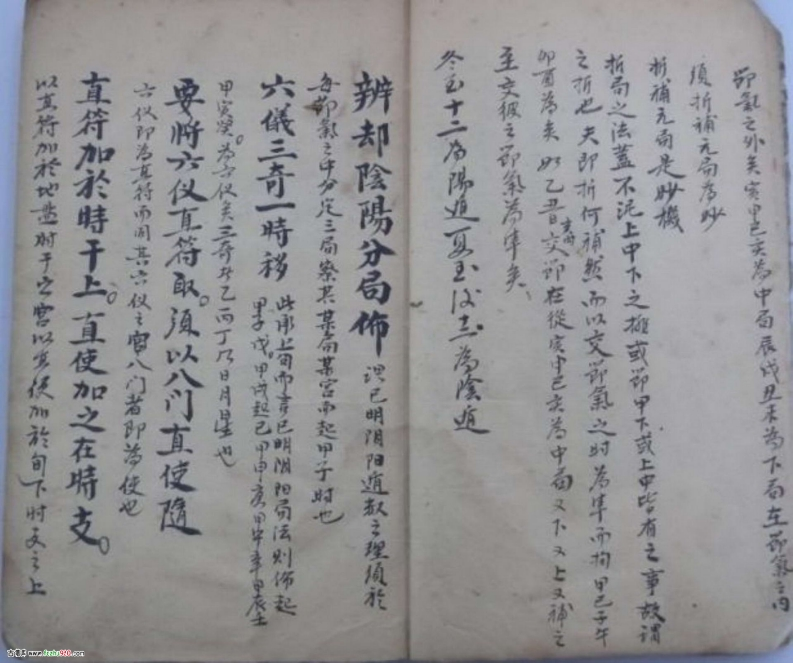 節氣之外矣寅申巳亥為中局辰戌丑未為下局在節氣之內
須折補先局為妙
折補先局是妙機
折局之法蓋不泥上中下之推或節甲下或上中皆有之事故謂
之折也夫即折何補然而以交節氣之時為準而拘甲己子午
卯酉為矣如乙丑交節在從寅申巳亥為中局又下又上又補之
至交彼之節氣為準矣
冬至十二為陽遁夏至後為陰遁
辨却陰陽分局佈 識已明阴阳遁数之理須於
每節氣之中分定三局察其某局某宮而起甲子時也
六儀三奇一時移 此承上句而言已明阴阳局法則佈起
甲子戊甲戌起己甲申庚甲午辛甲辰壬
甲寅癸為六仪矣三奇者乙丙丁乃日月星也
要將六仪直符取。須以八门直使隨
六仪即為直符而同其六仪之宮八门者即為使也
直符加於時干上。直使加之在時支。
以直符加於地盘时干之宮以直使加於旬下时支之上
古書系 www.